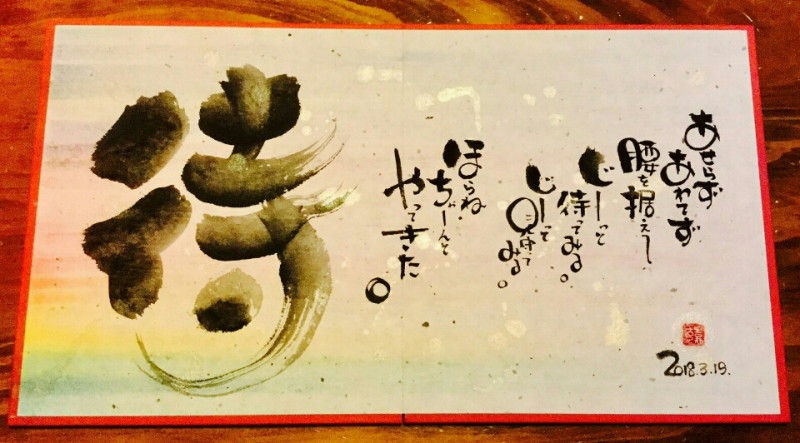 あせらず
あわてず
腰を据え〜
じーっと
待ってみる。
じーっと
見守って
みる。
ほらね
ちゃーんと
やってきた。
待
2018.3.19.